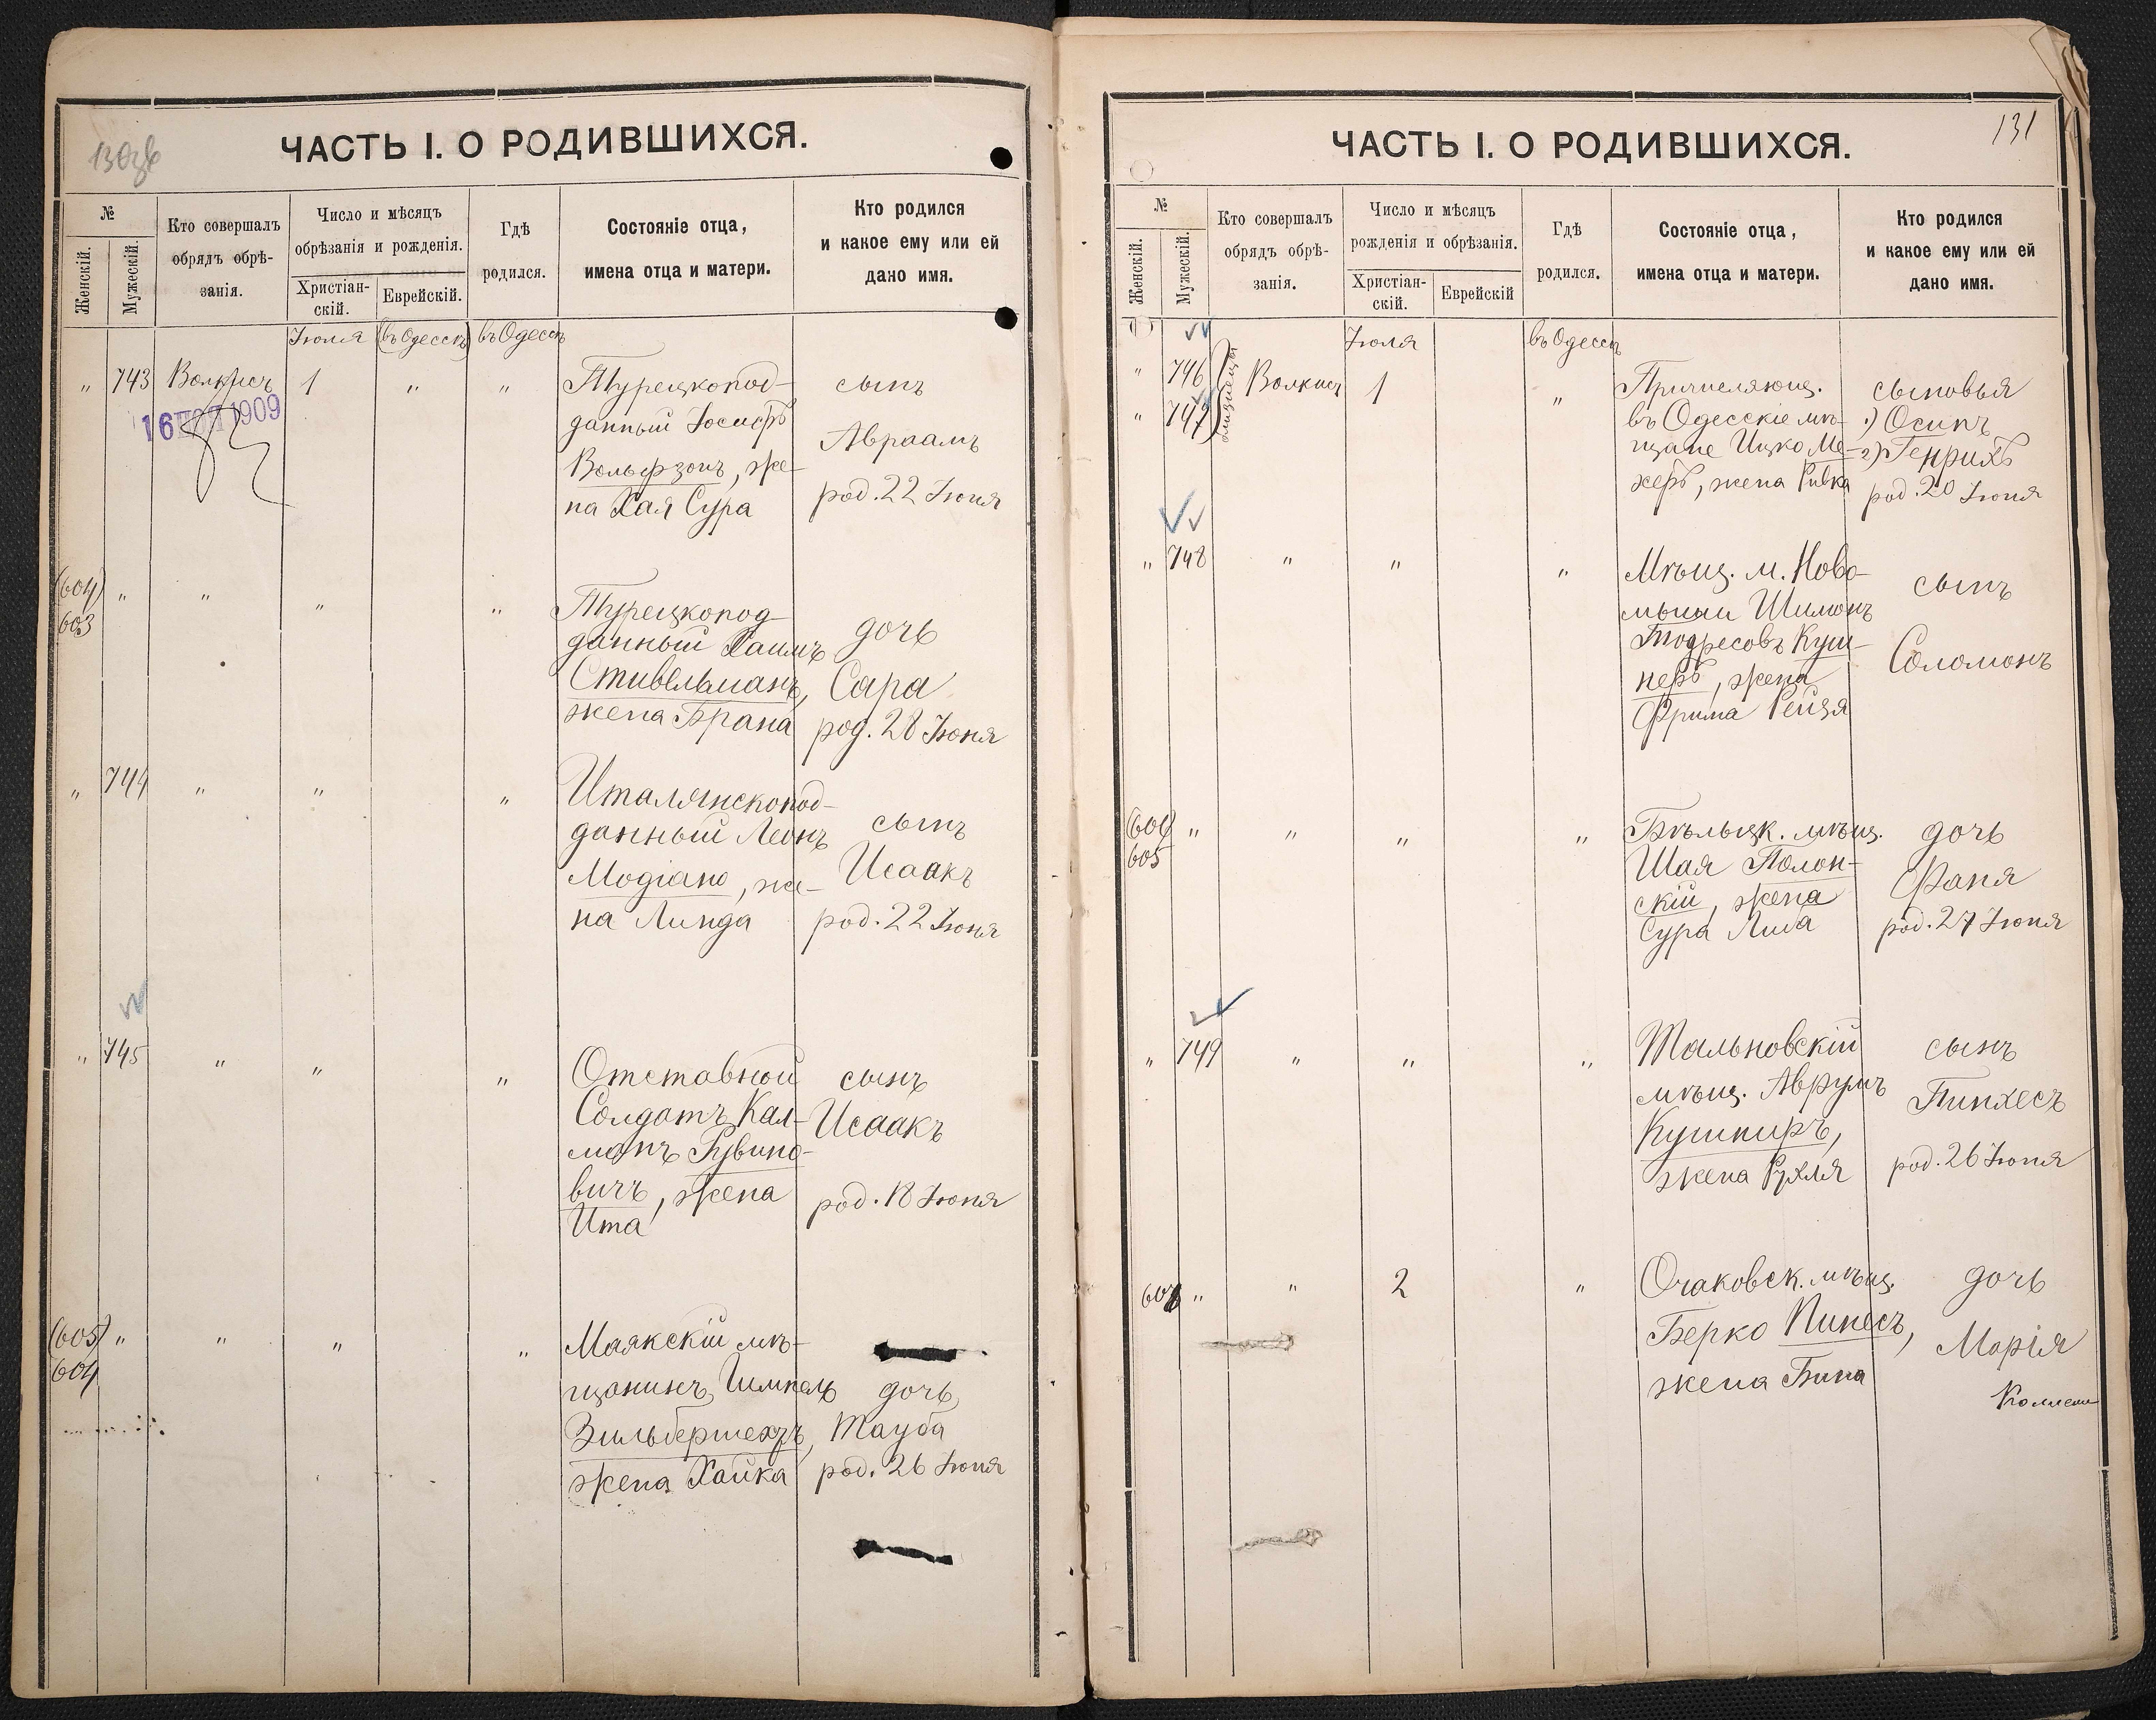 130об
ЧАСТЬ I. О РОДИВШИХСЯ.
№
Женскій.
Мужескій.
Кто совершалъ
обрядъ обрѣ-
занія.
Число и мѣсяцъ
обрѣзанія и рожденія.
Христіан-
скій.
Еврейскій.
Гдѣ
родился.
Состояніе отца,
имена отца и матери.
Кто родился
и какое ему или ей
дано имя.
Іюля (въ Одессѣ) въ Одессѣ
" 743 Волкисъ 1 " "
16 1909
Турецкопод-
данный Іосифъ
Вольфзонъ, же-
на Хая Сура
сынъ
Авраамъ
род. 22 Іюня
(604) " " " "
603
Турецкопод-
данный Хаимъ
Стивельманъ,
жена Брана
дочь
Сара
род. 28 Іюня
" 744 " " "
Италянскопод-
данный Леонъ
Модіано, же-
на Линда
сынъ
Исаакъ
род. 22 Іюня
" 745 " " "
Отставной
Солдатъ Кал-
манъ Рувино-
вичъ, жена
Ита
сынъ
Исаакъ
род. 18 Іюня
(605) " " " "
604
Маякскій мѣ-
щанинъ Шмпель
Зильбершехзъ,
жена Хайка
дочь
Тауба
род. 26 Іюня
131
ЧАСТЬ I. О РОДИВШИХСЯ.
№
Женскій.
Мужескій.
Кто совершалъ
обрядъ обрѣ-
занія.
Число и мѣсяцъ
рожденія и обрѣзанія.
Христіан-
скій.
Еврейскій
Гдѣ
родился.
Состояніе отца,
имена отца и матери.
Кто родился
и какое ему или ей
дано имя.
Іюля въ Одессѣ
" 746 Волкисъ 1 "
" 747
близнецы
Причисляющ.
въ Одесскіе мѣ-
щане Ицко Ме-
херъ, жена Ривка
сыновья
1) Осипъ
2) Генрихъ
род. 20 Іюня
" 748 " " "
Мѣщ. м. Ново-
мыши Шимонъ
Тодресовъ Куш-
неръ, жена
Фрима Рейзя
сынъ
Соломонъ
(606) " " " "
605
Бѣльцк. мѣщ.
Шая Полон-
скій, жена
Сура Либа
дочь
Фаня
род. 27 Іюня
" 749 " " "
Тальновскій
мѣщ. Аврумъ
Кушниръ,
жена Рухля
сынъ
Пинхесъ
род. 26 Іюня
606 " " 2 "
Очаковск. мѣщ.
Берко Пинесъ,
жена Бина
дочь
Марія